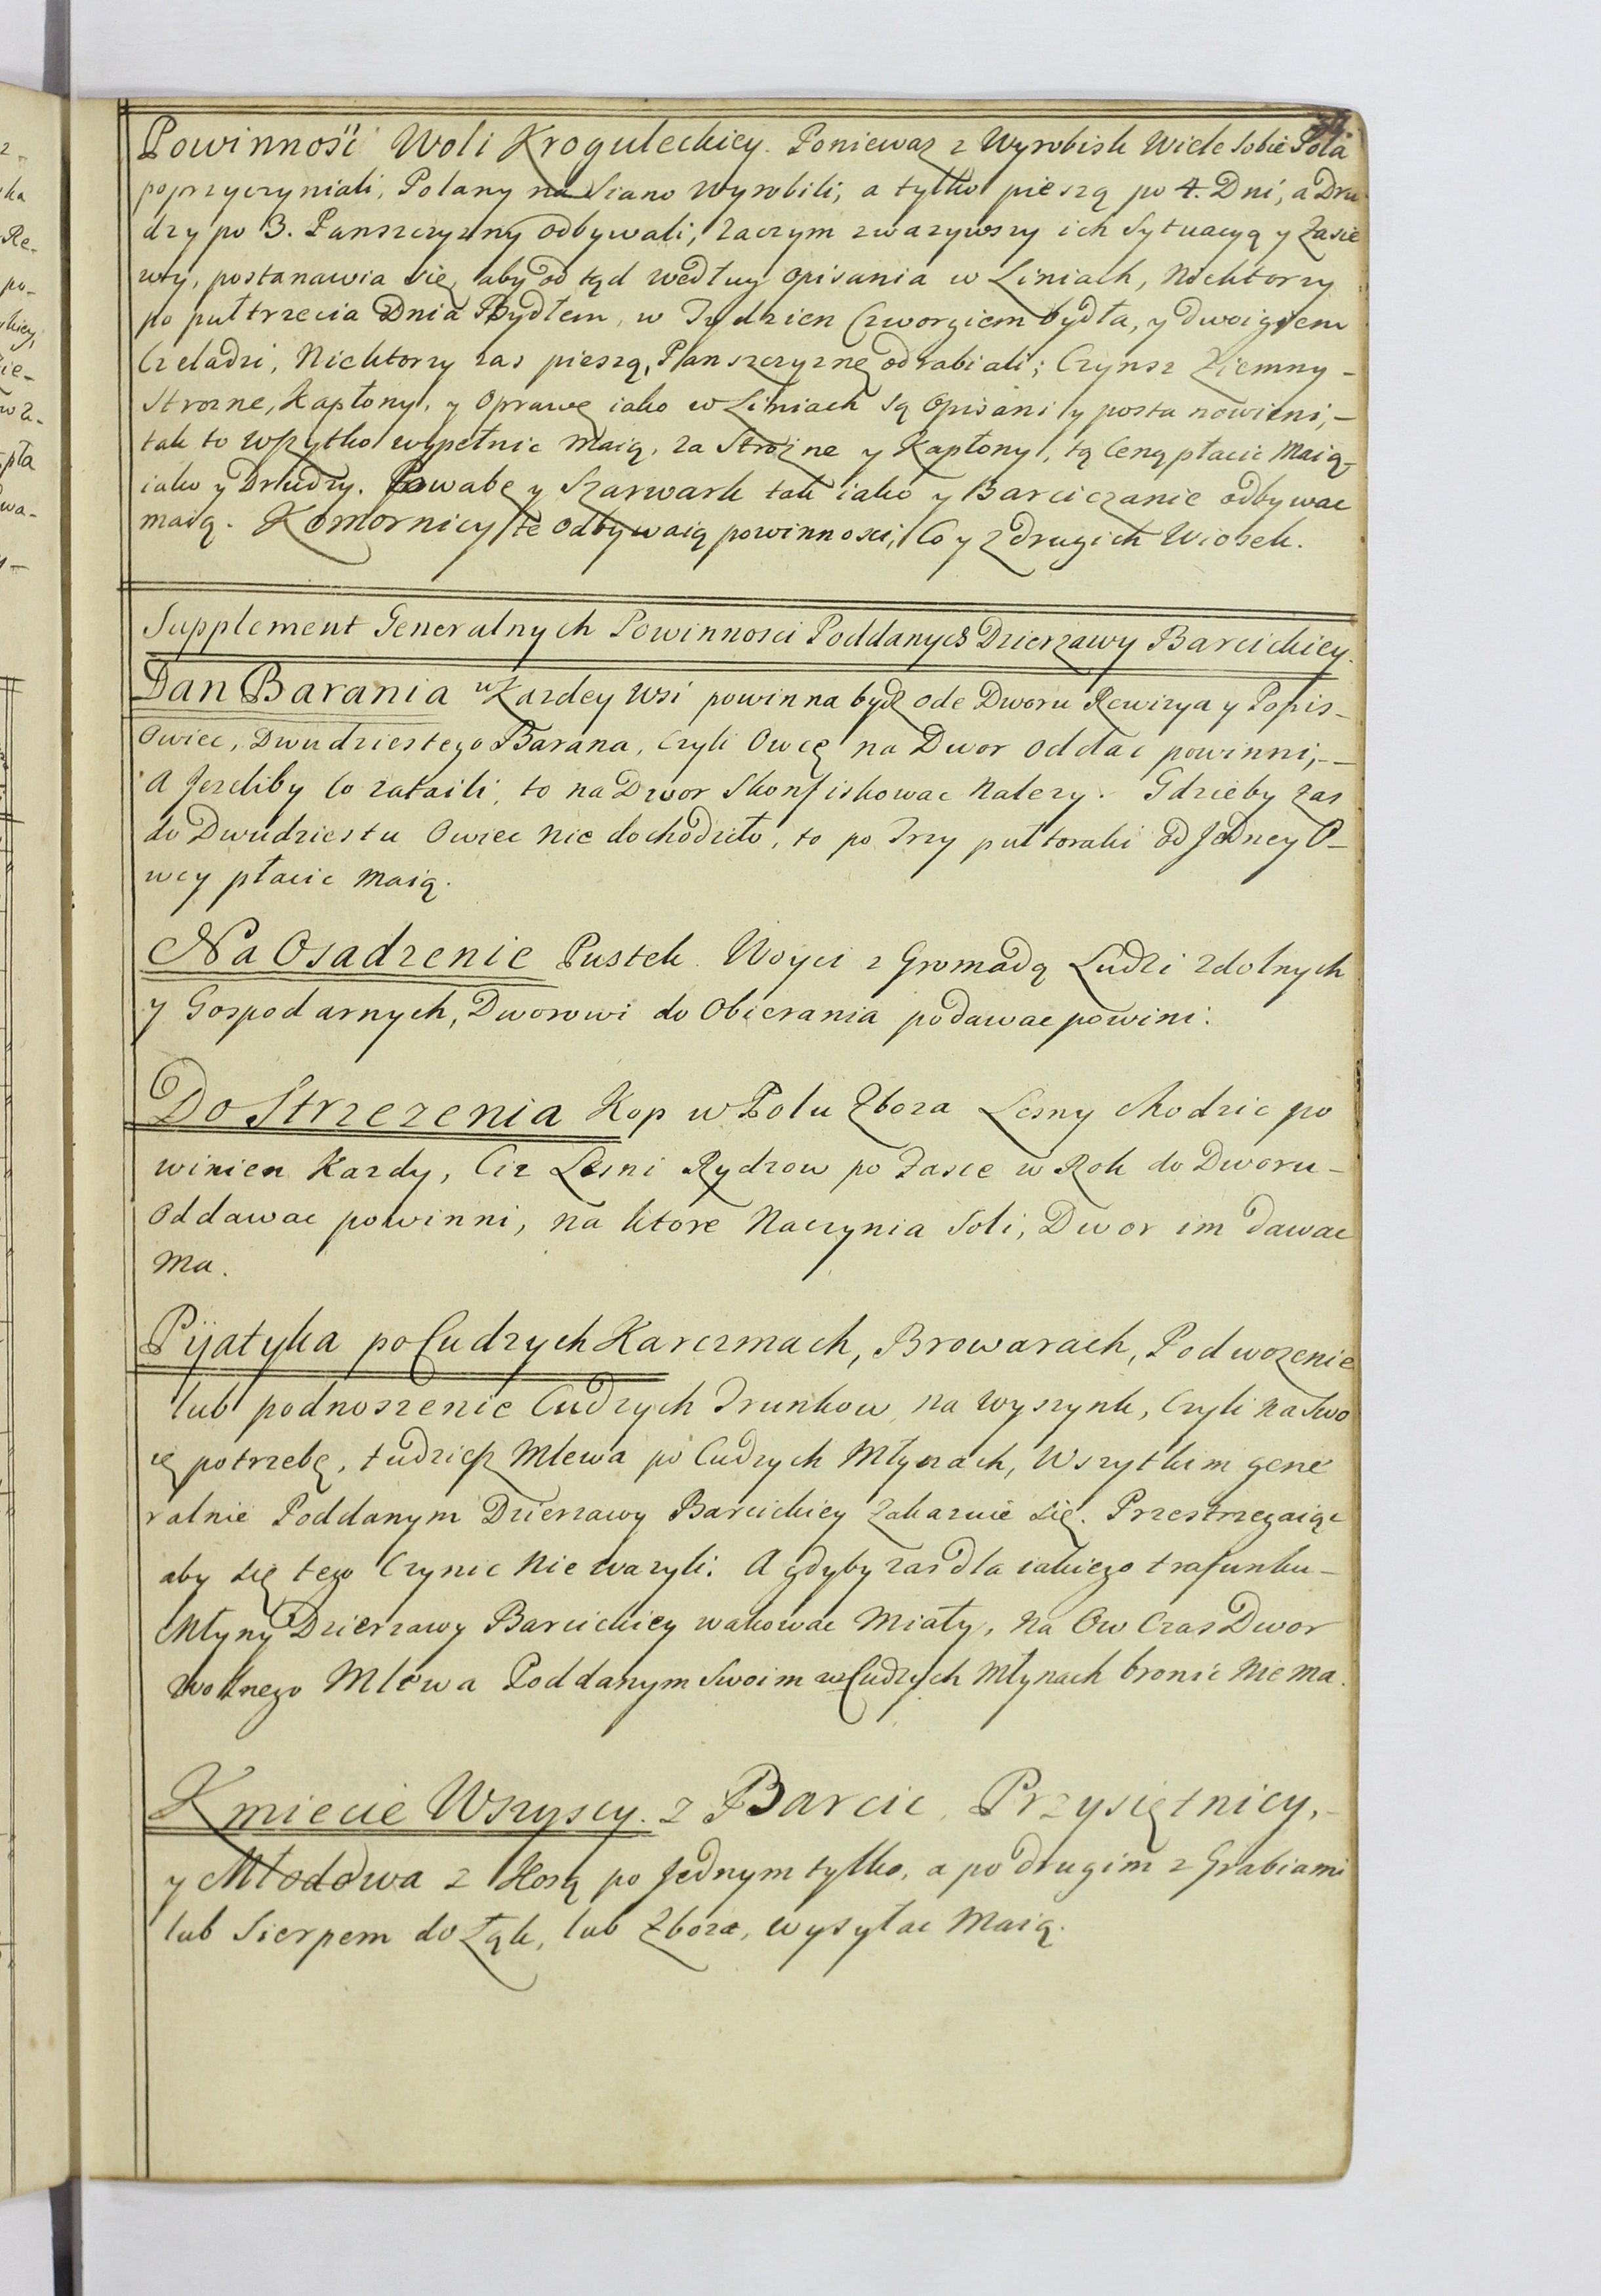 Powinność Woli Kroguleckiey. Poniewaz z Wyrobisk Wiele sobie Pola
poprzyczyniali, Polany na Siano Wyrobili, a tylko pieszą po 4. Dni, a Dru-
dzy po 3. Panszczyzny odbywali, zaczym zwazywszy ich Sytuacyą y Zasie
wy, postanawia się, aby od tąd według opisania w Liniach, Niektorzy
po pułtrzecia Dnia Bydłem, w Tydzien Czworgiem bydła, y dwoigiem
Czeladzi, Niektorzy zas pieszą, Panszczyznę odrabiali; Czynsz Ziemny -
Strozne, Kapłony, y Oprawę iako w Liniach są Opisani y postanowieni, -
tak to wszytko wypełnic maią, za Strozne y Kapłony, tą Ceną płacic Maią
iako y Drudzy. Powabę y Szarwark tak iako y Barciczanie odbywac
maią. Komornicy te odbywaią powinnosci, Co y z drugich Wiosek.
Supplement Generalnych Powinnosci Poddanych Dzierzawy Barcickiey.
Dan Barania w Kazdey Wsi powinna bydz ode Dworu Rewizya y Popis -
Owiec, Dwudziestego Barana, Czyli Owcę na Dwor oddac powinni, - -
A Jezeliby Co zataili, to na Dwor Skonfiskowac Nalezy. Gdzieby zas
do Dwudziestu Owiec nie dochodziło, to po Trzy pułtoraki od Jedney O -
wcy płacic maią.
Na Osadzenie Pustek Woyci z Gromadą Ludzi zdolnych
y Gospodarnych, Dworowi do Obierania podawac powini.
Do Strzezenia Kop w Polu Zboza Lesny chodzic po
winien Kazdy, Ciz Lesni Rydzow po Fasce w Rok do Dworu -
Oddawac powinni, na ktore Naczynia Soli, Dwor im dawac
Ma.
Pijatyka po Cudzych Karczmach, Browarach, Podwozenie
lub podnoszenie Cudzych Trunkow na Wyszynk, Czyli na Swo
ię potrzebę, tudziesz Mlewa po Cudzych Młynach, Wszytkim gene
ralnie Poddanym Dzierzawy Barcickiey zakazuie się. Przestrzegaiąc
aby się tego Czynic nie wazyli. A gdyby zas dla iakiego trafunku -
Młyny Dzierzawy Barcickiey wakowac Miały, na Ow Czas Dwor
wolnego Mlewa Poddanym Swoim w Cudzych Młynach bronic nie ma.
Kmiecie Wszyscy z Barcic, Przysietnicy, -
y Młodowa z Kosą po Jednym tylko, a po drugim z Grabiami
lub Sierpem do Łąk, lub Zboza, wysyłac Maią.